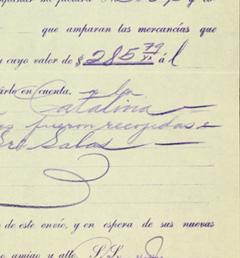 que amparan las mercancías que
cuyo valor de $ 285 79 á l
en cuenta. a la
Catalina
fueron recojidas e
Salas
de este envío, y en espera de sus nuevas
amigo y atto. S.S.